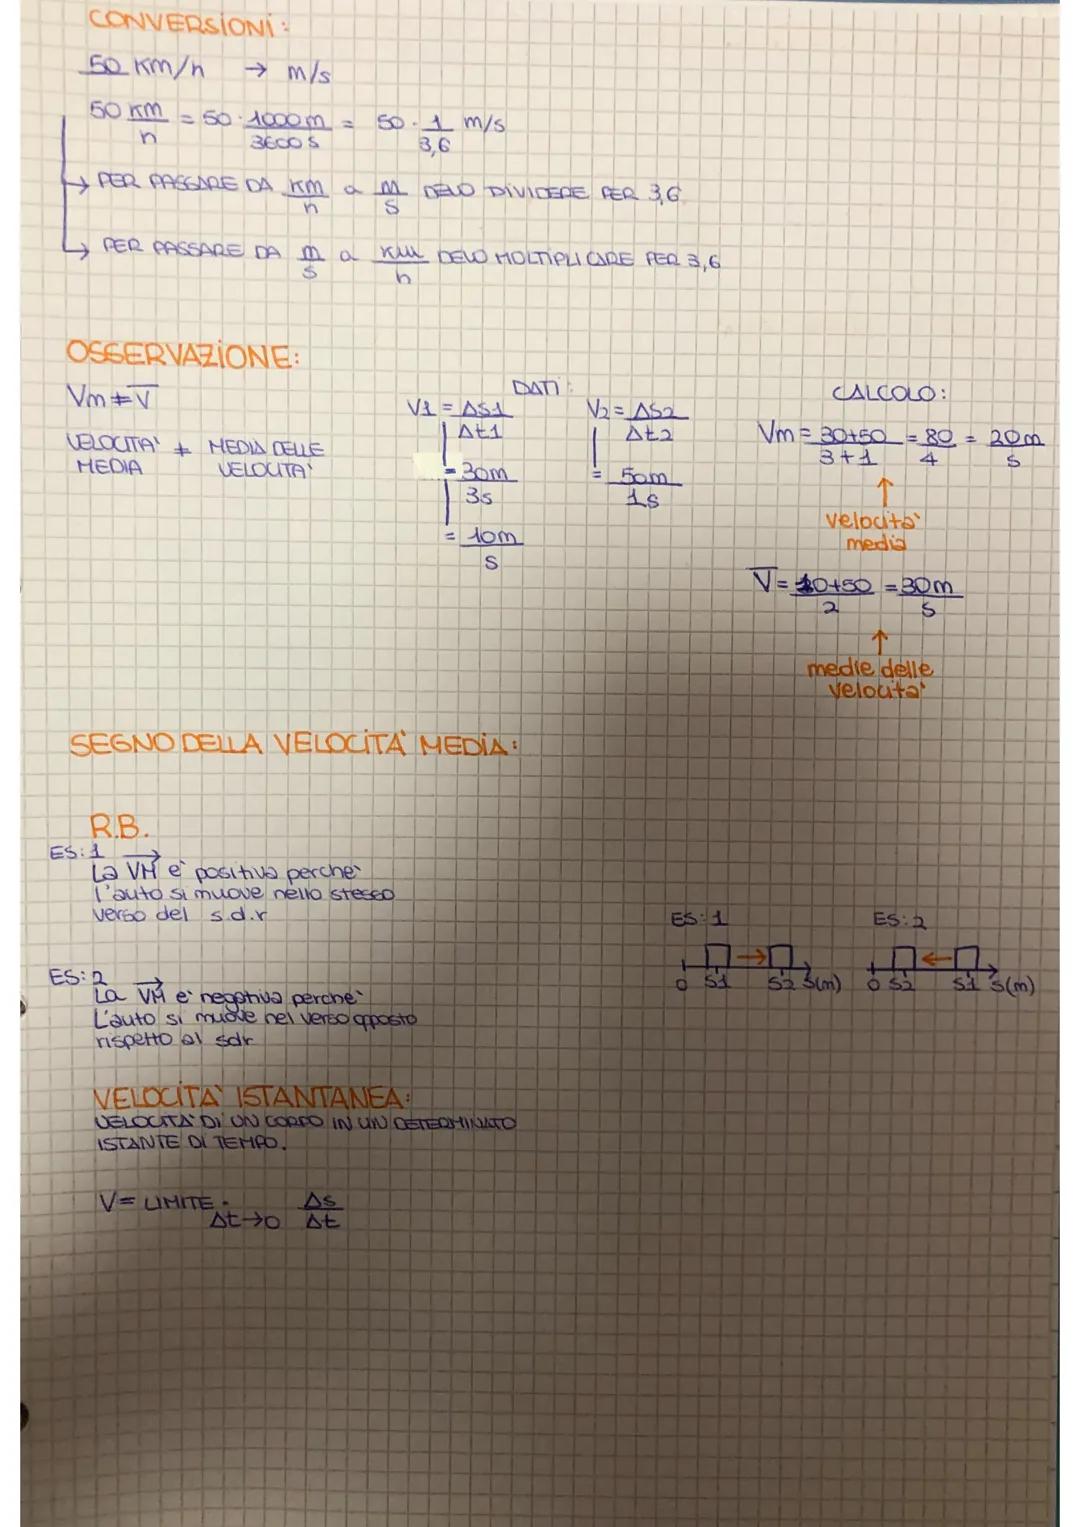 CONVERSIONI:
50 Km/h → m/s
50 Km/h = 50 · 1000m/3600s = 50 · 1/3,6 m/s
→ PER PASSARE DA Km/h a m/s DEVO DIVIDERE PER 3,6
→ PER PASSARE DA m/s a Km/h DEVO MOLTIPLICARE PER 3,6
OSSERVAZIONE:
Vm ≠ V̅
VELOCITA' ≠ MEDIA DELLE
MEDIA VELOCITA'
DATI:
V1 = ΔS1/Δt1
= 30m/3s
= 10m/s
V2 = ΔS2/Δt2
= 50m/1s
CALCOLO:
Vm = 30+50/3+1 = 80/4 = 20m/s
↑
velocita'
media
V̅ = 10+50/2 = 30m/s
↑
medie delle
velocita'
SEGNO DELLA VELOCITA' MEDIA:
R.B.
ES:1
La VM e' positiva perche'
l'auto si muove nello stesso
verso del s.d.r
ES:2
La VM e' negativa perche'
L'auto si muove nel verso opposto
rispetto al sdr
ES:1
0 S1 S2 S(m)
ES:2
0 S2 S1 S(m)
VELOCITA' ISTANTANEA:
VELOCITA' DI UN CORPO IN UN DETERMINATO
ISTANTE DI TEMPO.
V = LIMITE. Δs/Δt
Δt→0